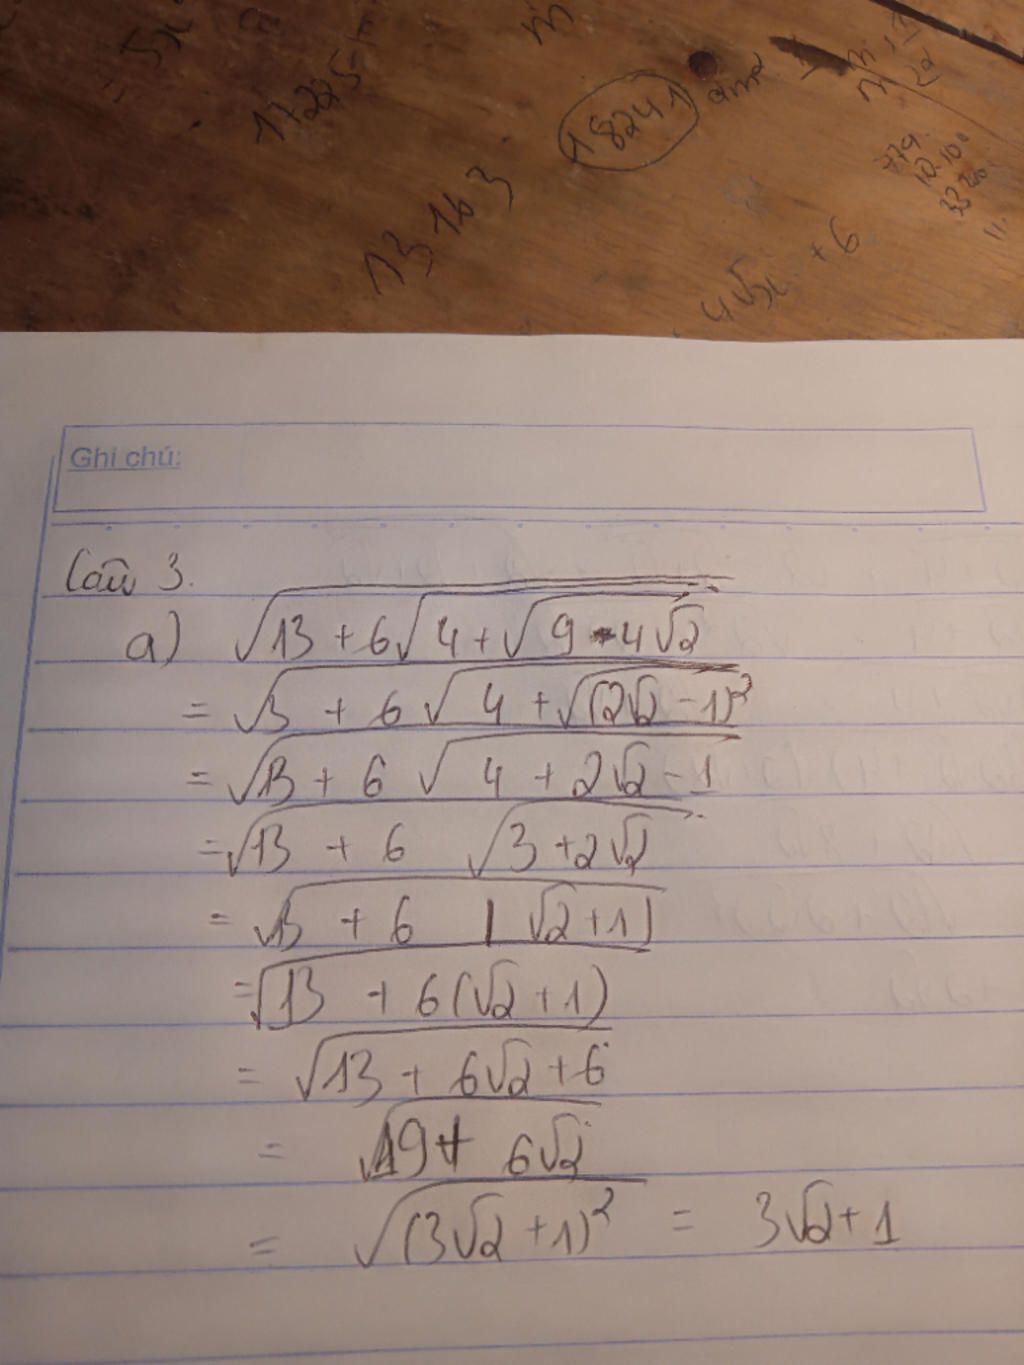 17225
18241
13163
4√5x + 6
Ghi chú:
Câu 3.
a) √(13 + 6√(4 + √(9 - 4√2)))
= √(13 + 6√(4 + √((2√2 - 1)²)))
= √(13 + 6√(4 + 2√2 - 1))
= √(13 + 6√(3 + 2√2))
= √(13 + 6|√2 + 1|)
= √(13 + 6(√2 + 1))
= √(13 + 6√2 + 6)
= √(19 + 6√2)
= √((3√2 + 1)²) = 3√2 + 1